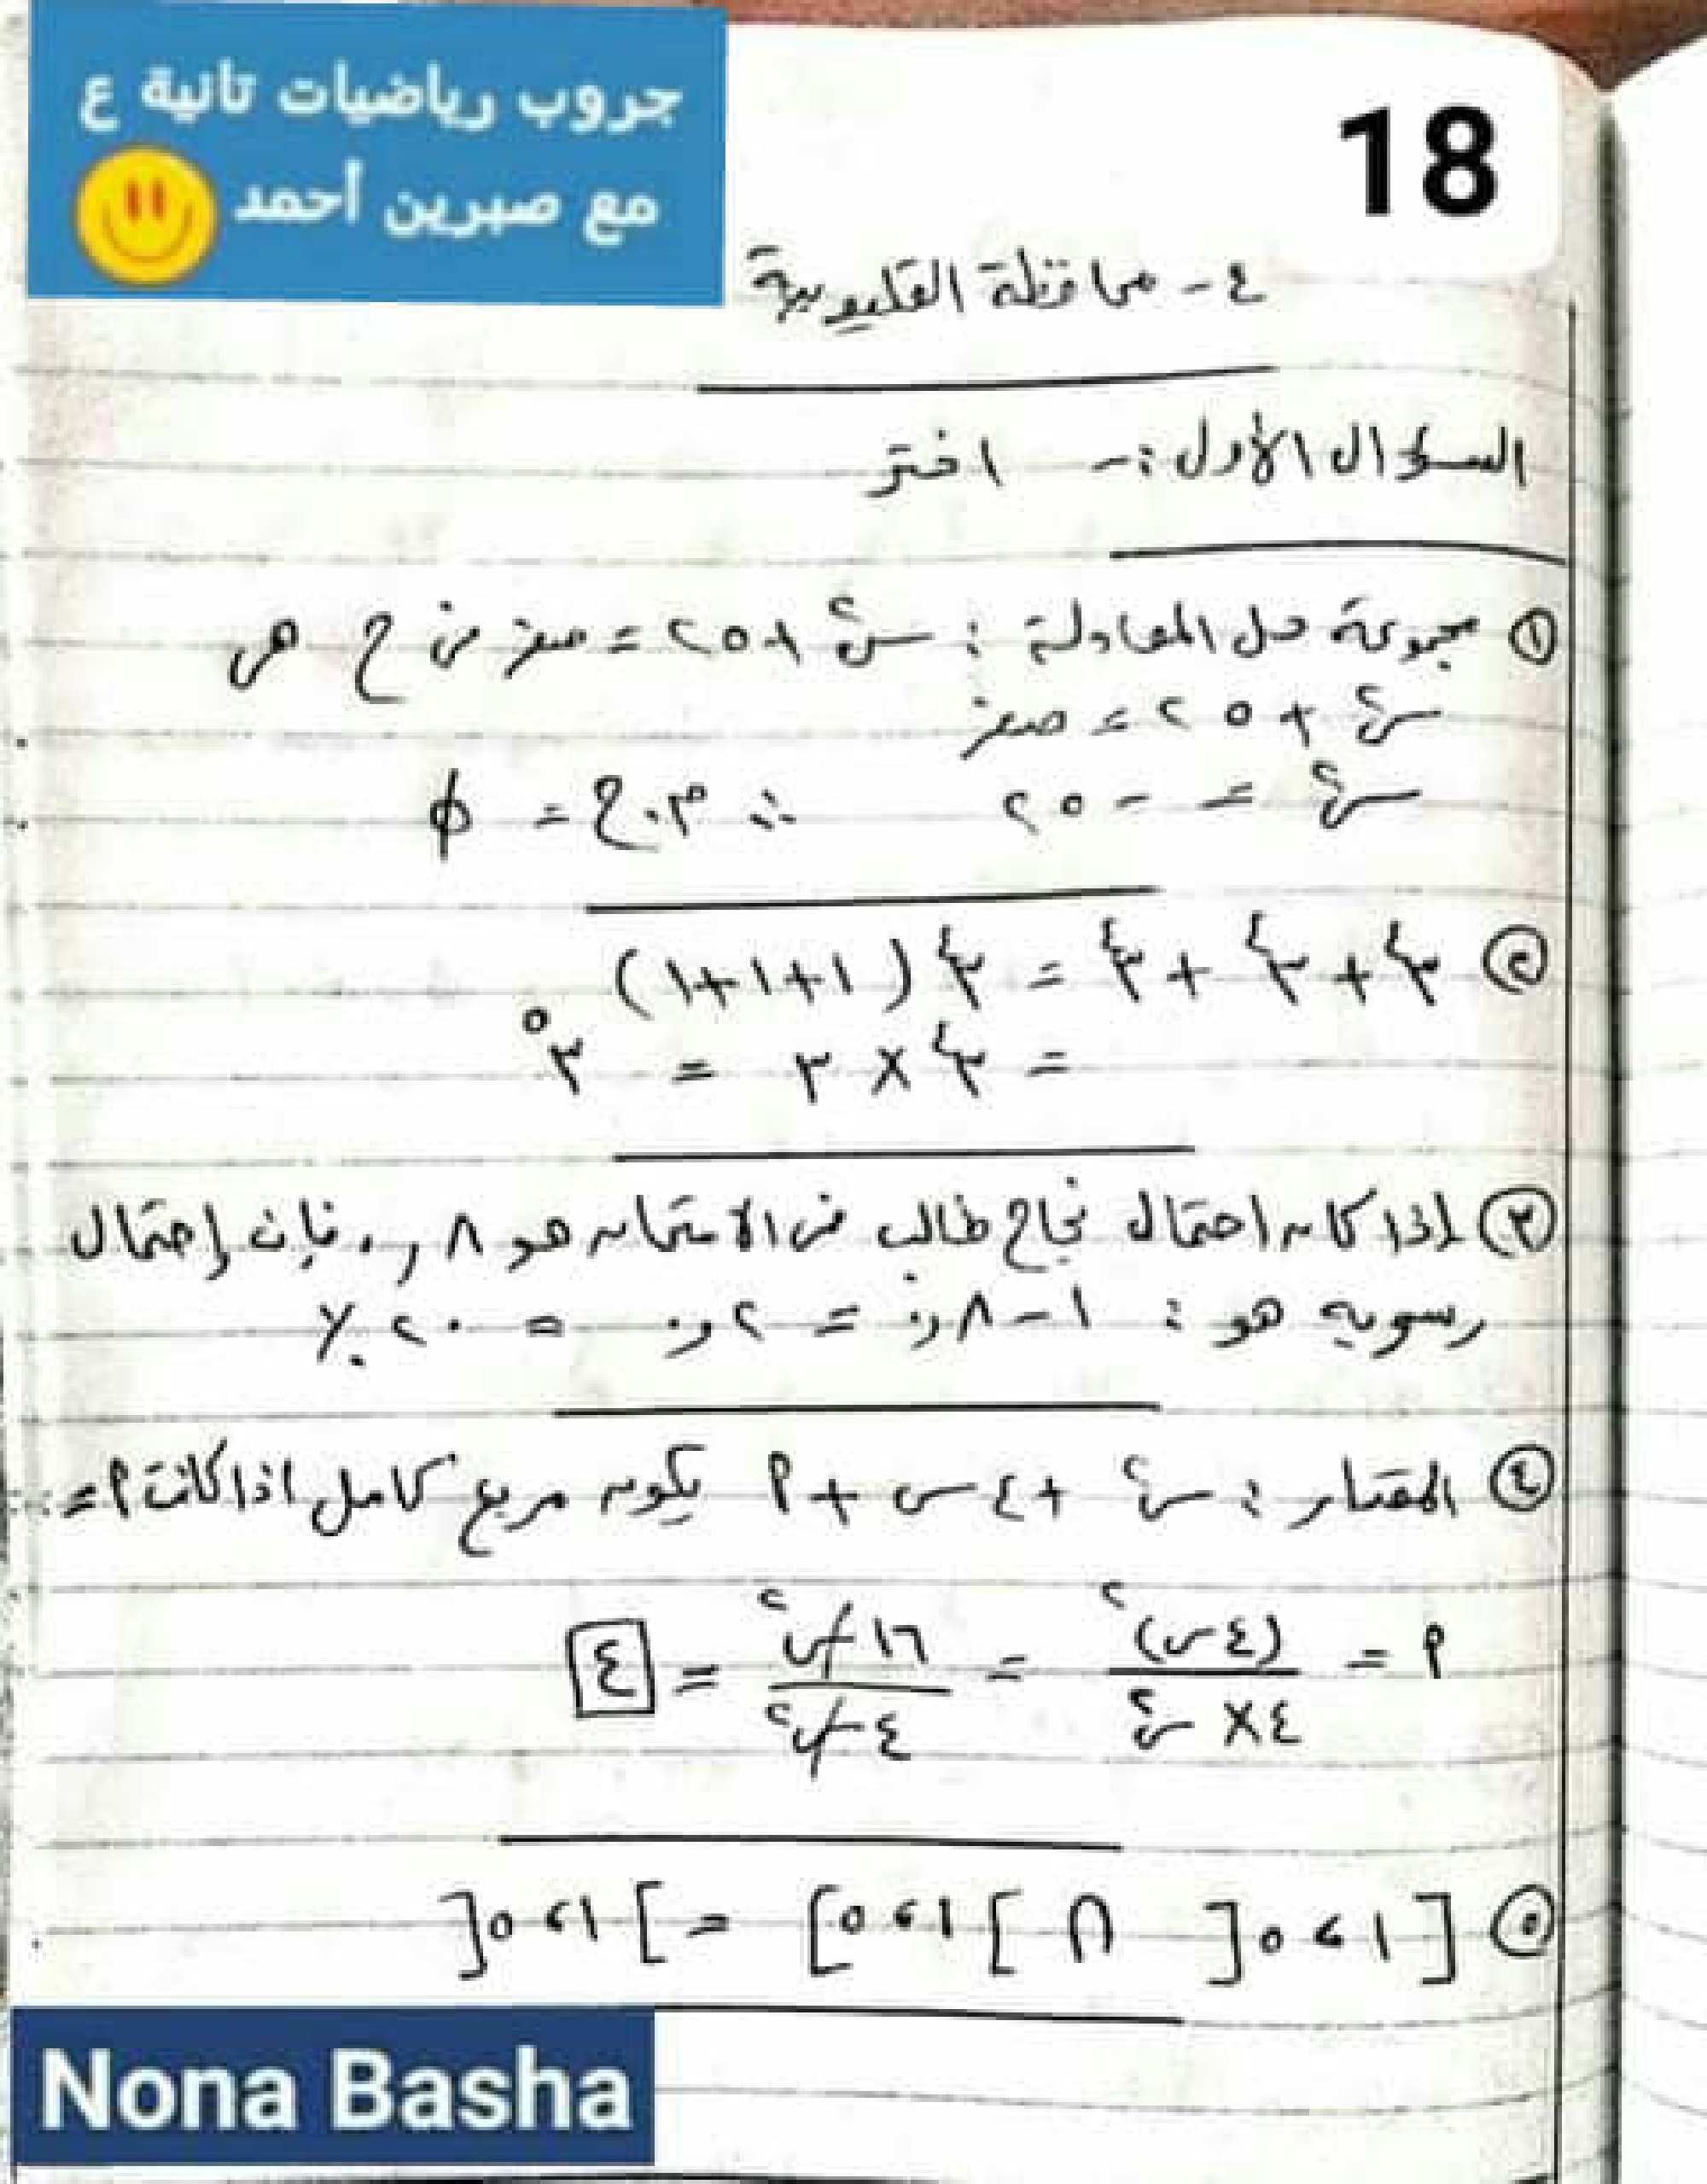 جروب رياضيات تانية ع
مع صبرين أحمد
18
٤- محافظة القليوبية
السؤال الأول :- اختر
① مجموعة حل المعادلة : س² + ٢٥ = صفر في ح هي
س² + ٢٥ = صفر
س² = -٢٥ ∴ م.ح = ϕ
② ٣⁴ + ٣⁴ + ٣⁴ = ٣⁴ (١+١+١)
= ٣⁴ × ٣ = ٣⁵
③ إذا كان احتمال نجاح طالب في الامتحان هو ٠,٨ فإن إحتمال
رسوبه هو : ١ - ٠,٨ = ٠,٢ = ٢٠ ٪
④ المقدار : س² + ٤س + م يكون مربع كامل اذا كانت م =
م = (٤س)² / ٤ × س² = ١٦س² / ٤س² = ٤
⑤ [١،٥[ ∩ ]١،٥] = ]١،٥[
Nona Basha